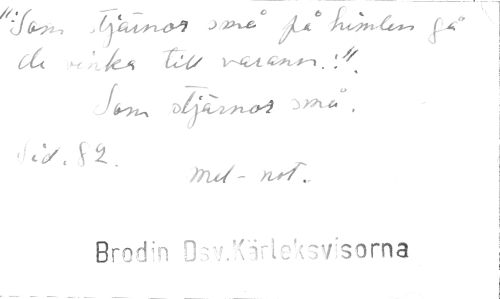 ":Som stjärnor små på himlen gå
de vinka till varann.:".
Som stjärnor små.
Sid. 82.
mel-not.
Brodin Dsv.Kärleksvisorna